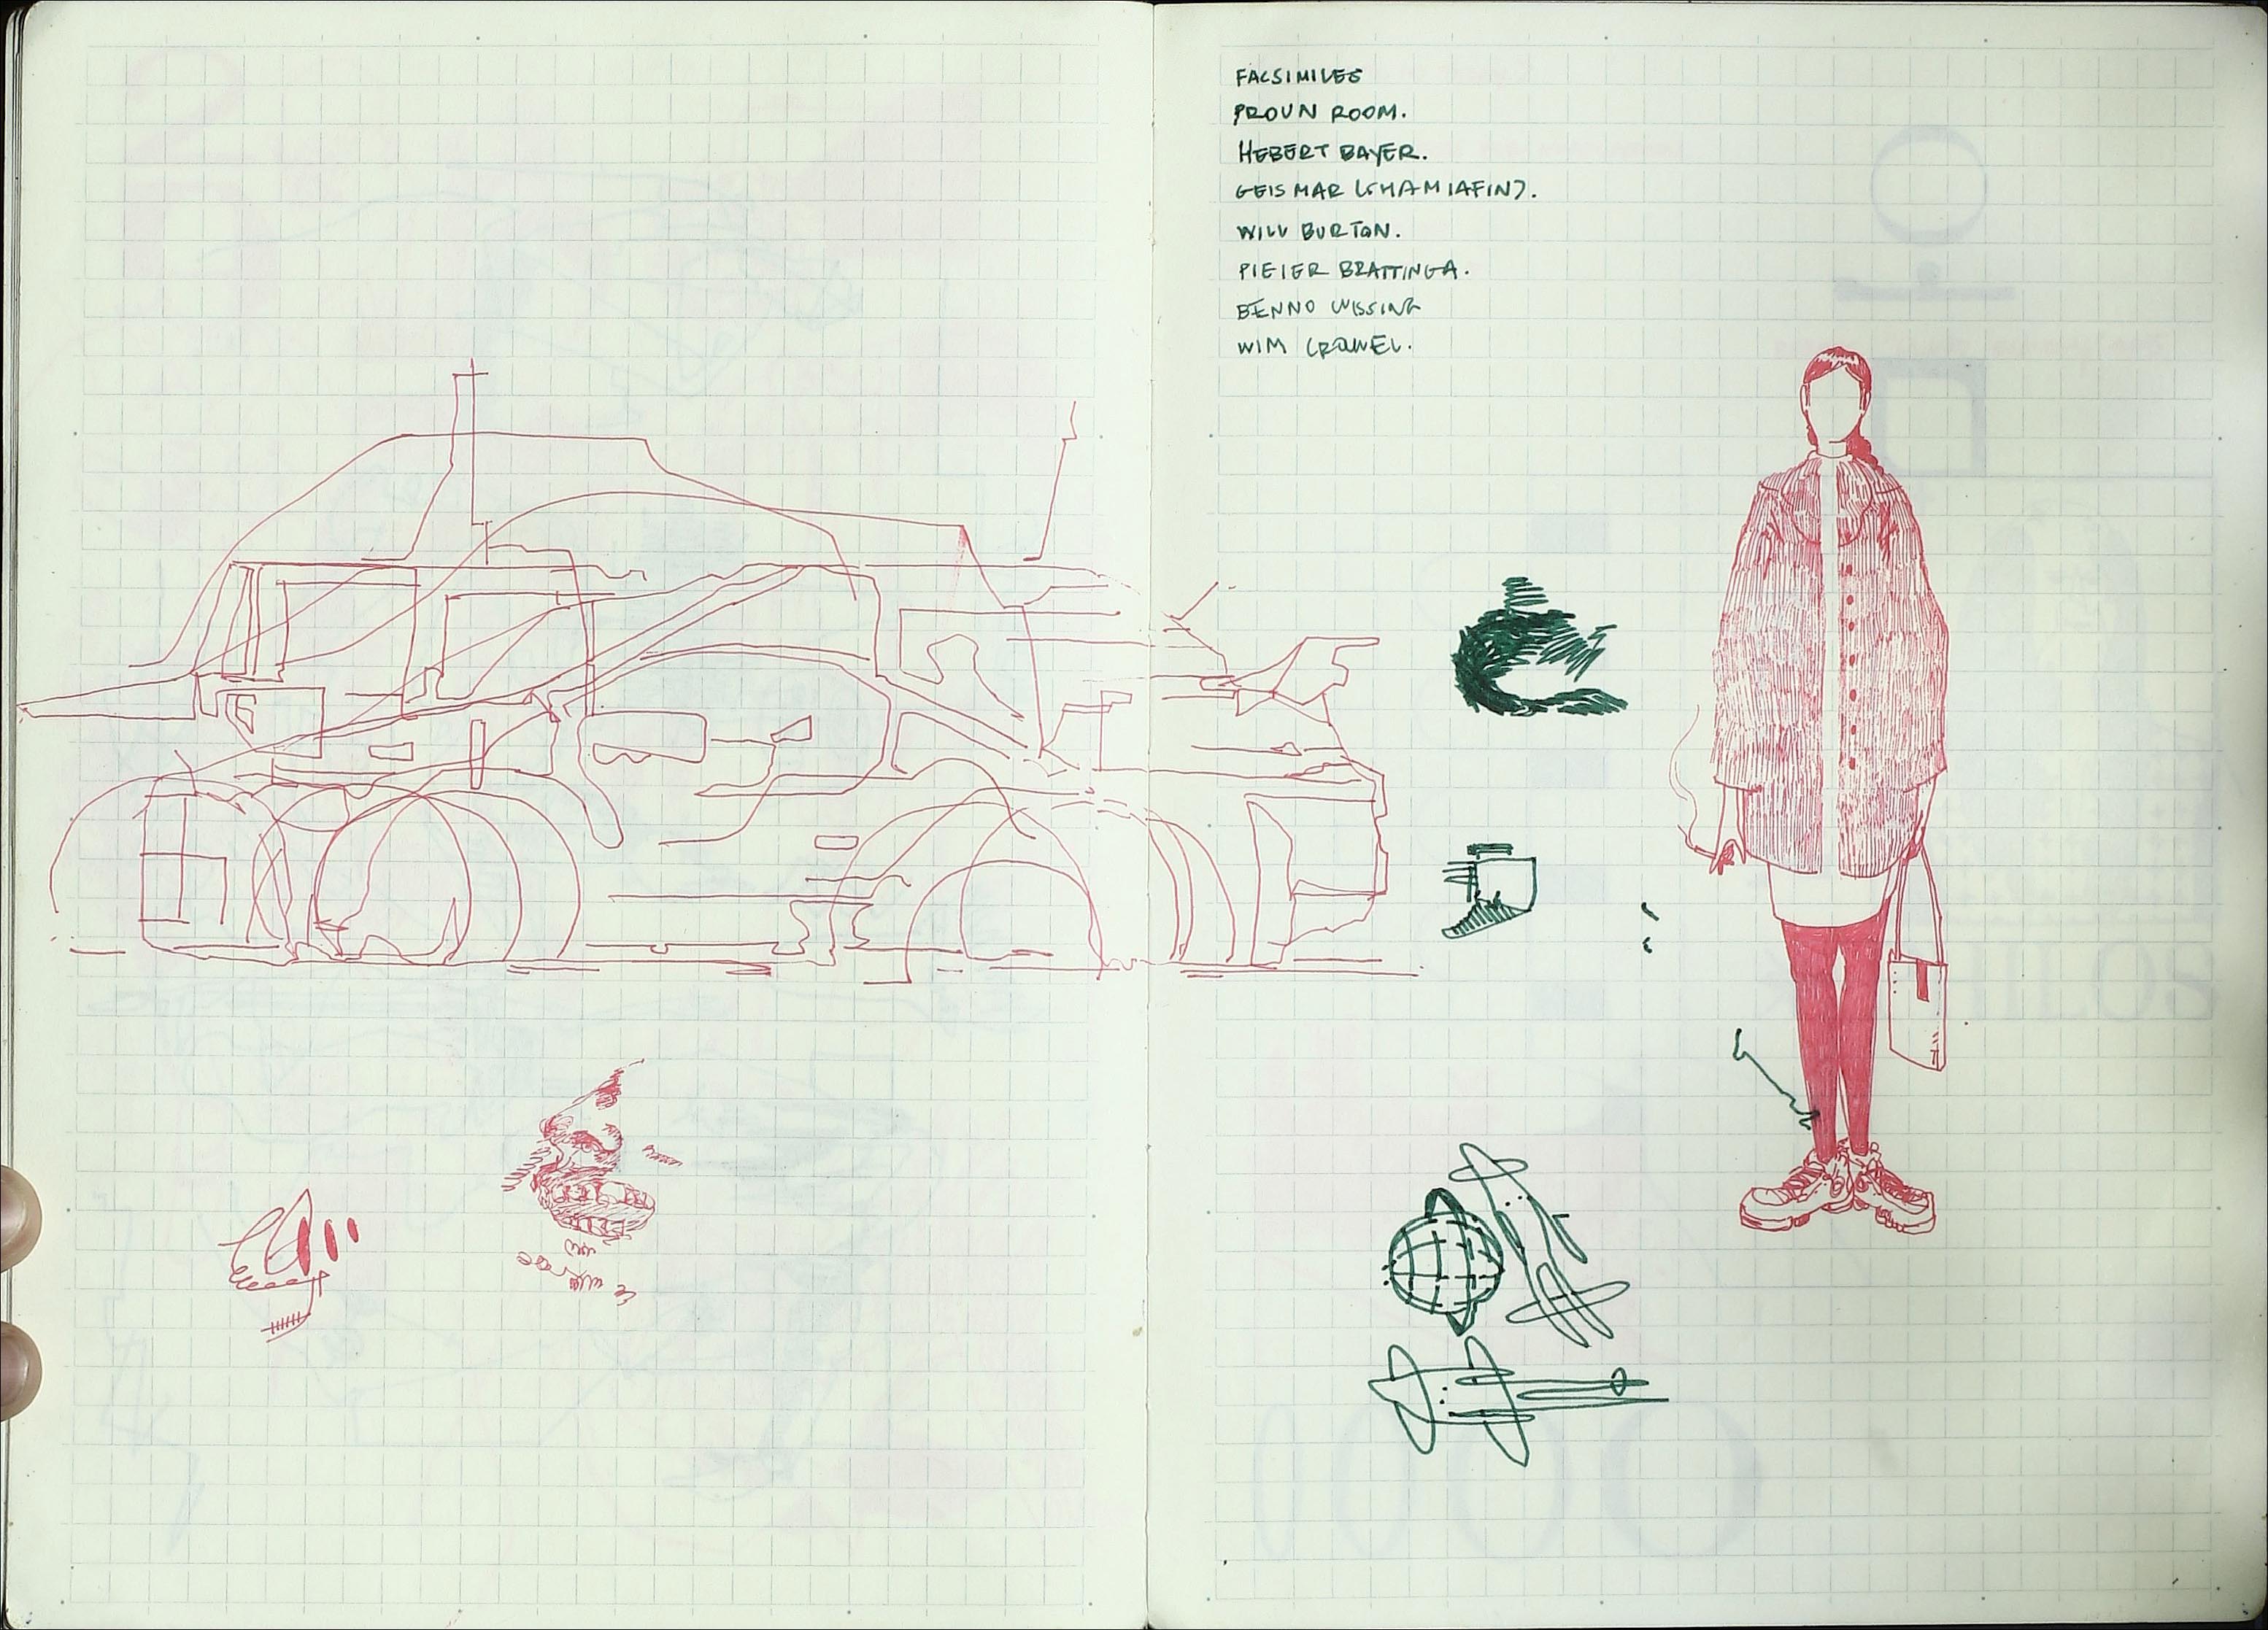 FACSIMILES
PROUN ROOM.
HEBERT BAYER.
GEISMAR
WILL BURTON.
PIETER BRATTINGA.
BENNO WISSING
WIM CROUWEL.